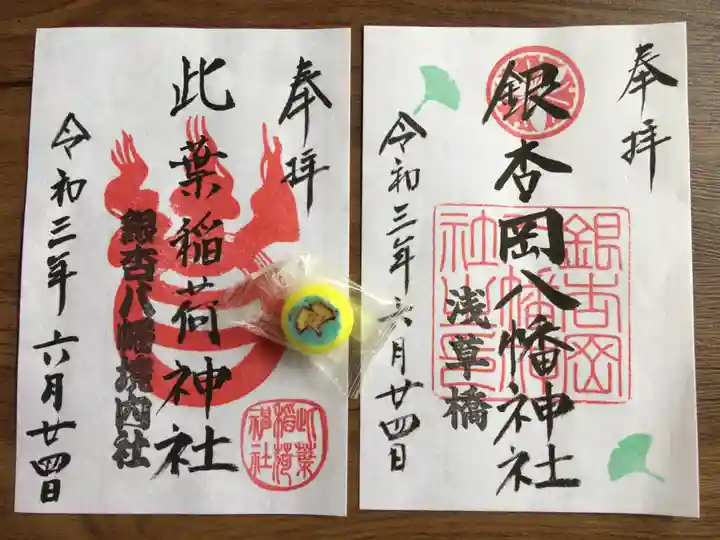 奉拝
此葉稲荷神社
銀杏八幡境内社
令和三年六月廿四日
此葉稲荷神社
奉拝
銀杏岡八幡神社
浅草橋
令和三年六月廿四日